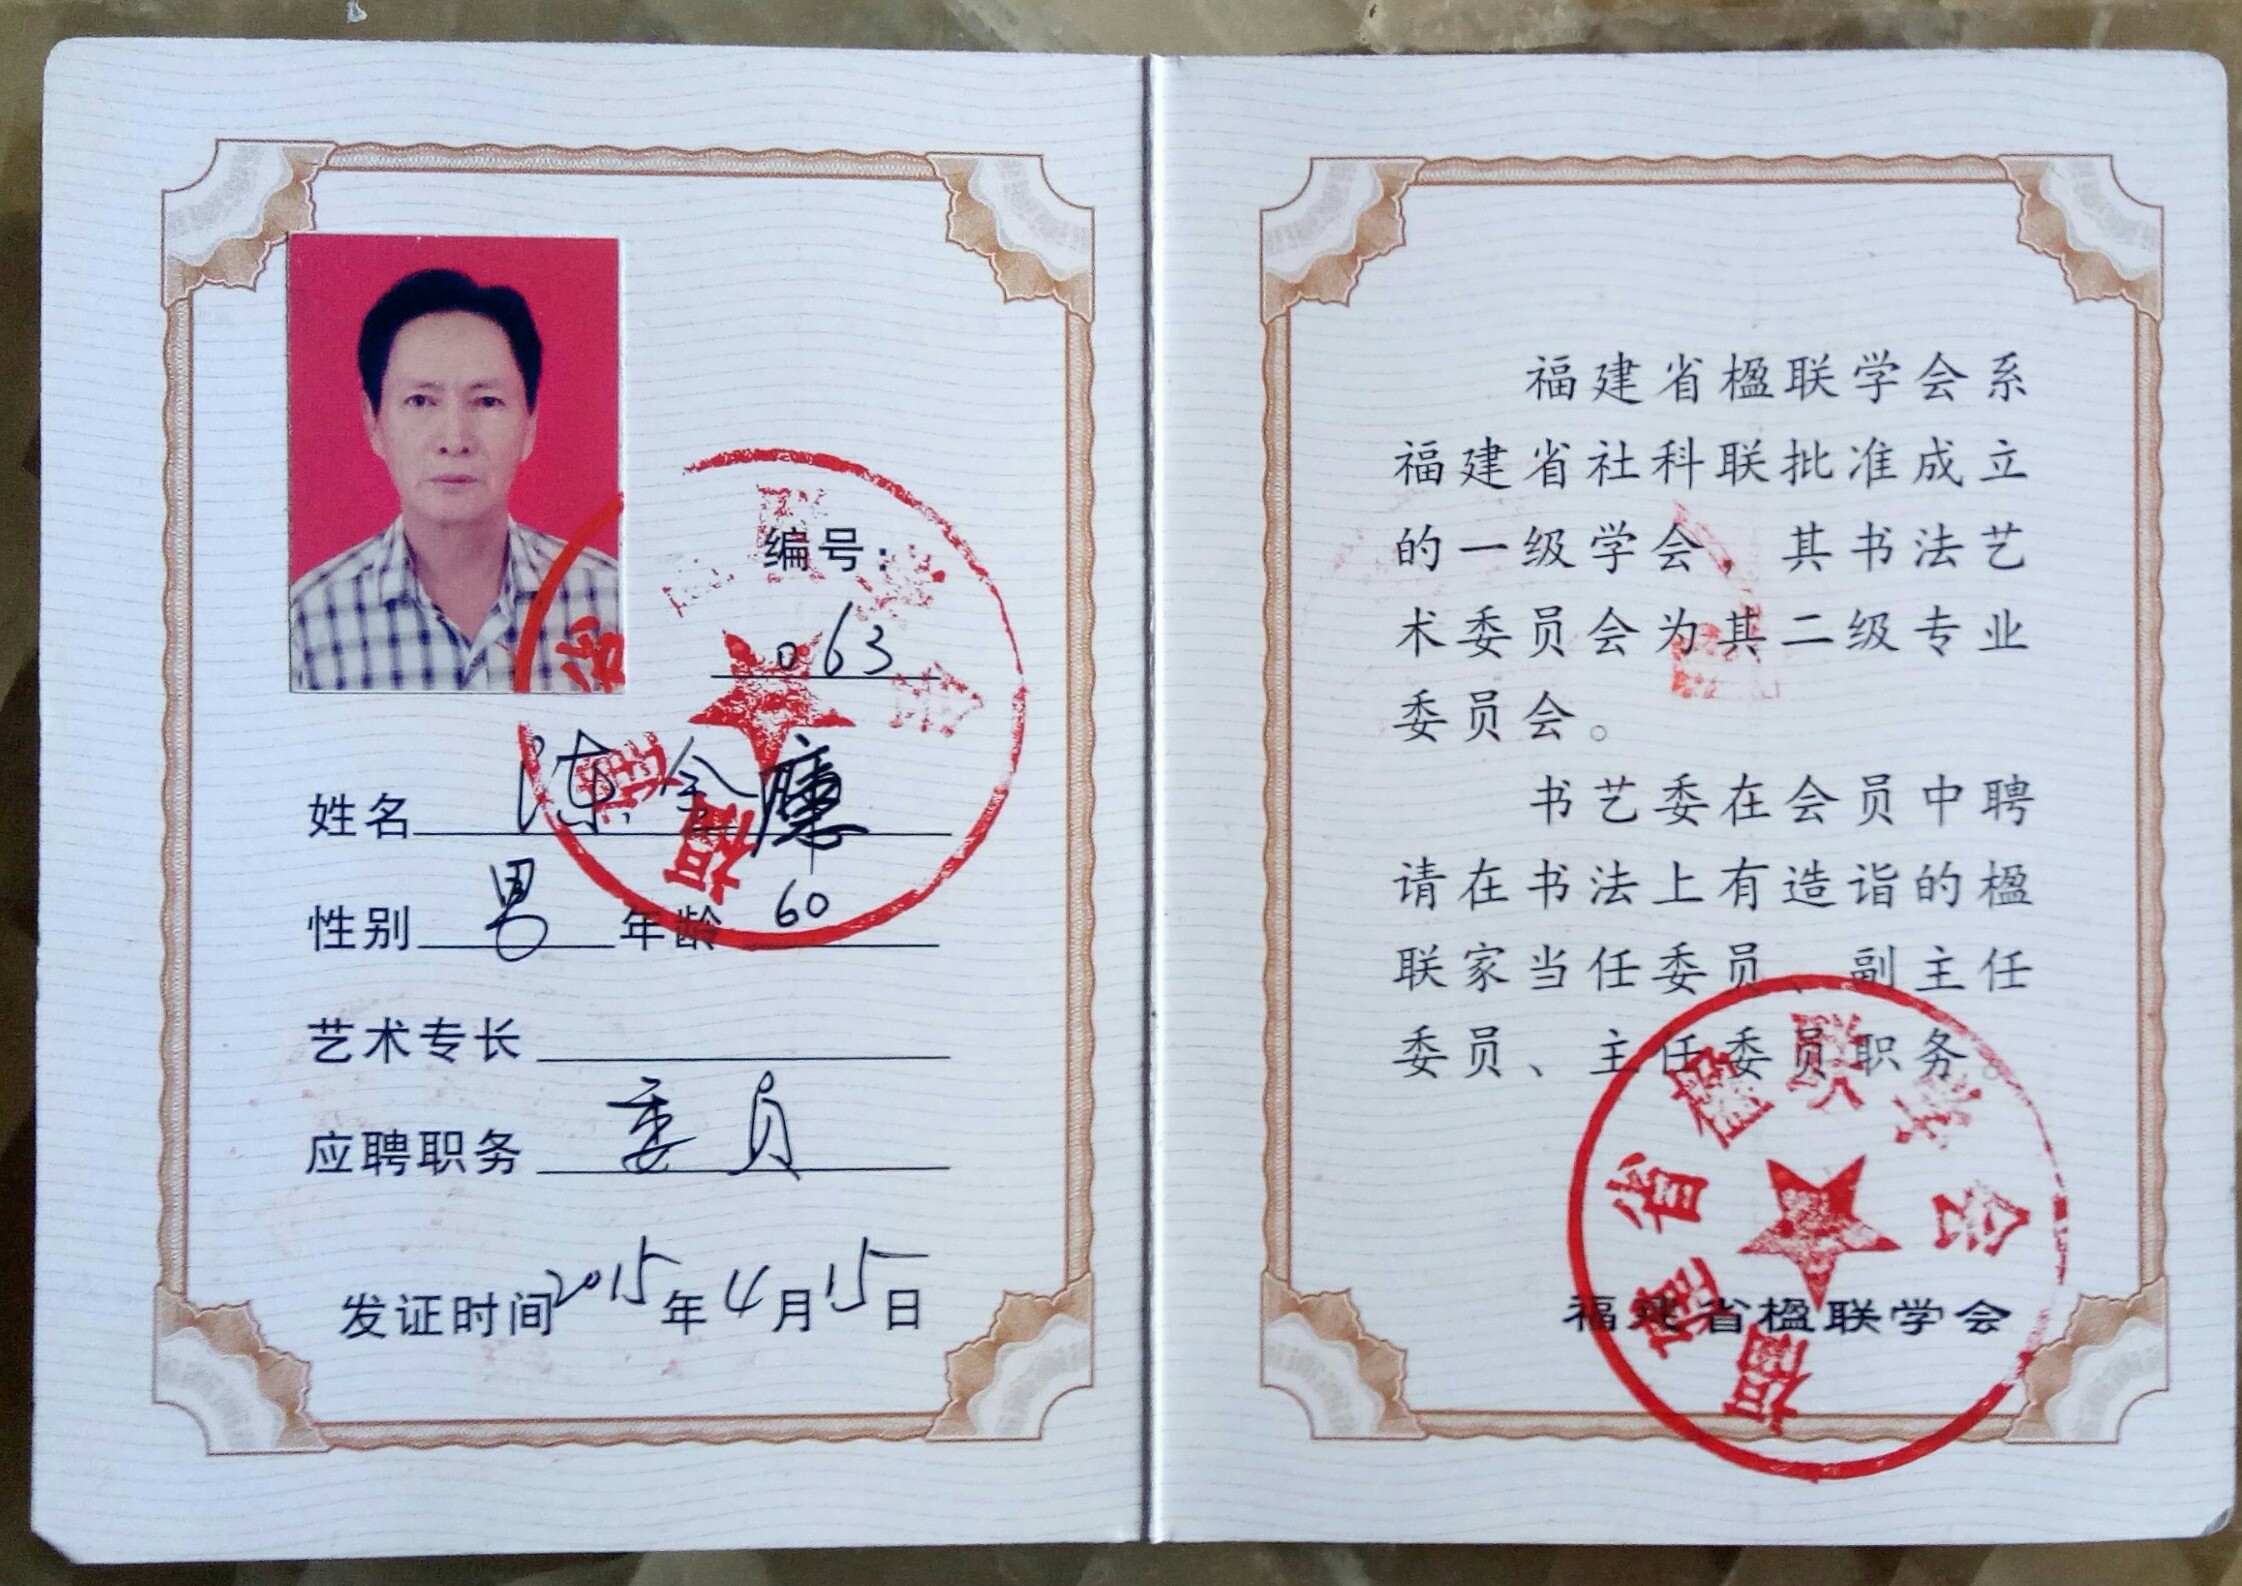 编号：
063
姓名 陈金
性别 男 年龄 60
艺术专长
应聘职务 委员
发证时间 2015年4月15日
福建省楹联学会系
福建省社科联批准成立
的一级学会，其书法艺
术委员会为其二级专业
委员会。
书艺委在会员中聘
请在书法上有造诣的楹
联家当任委员、副主任
委员、主任委员职务。
福建省楹联学会
福建省楹联学会